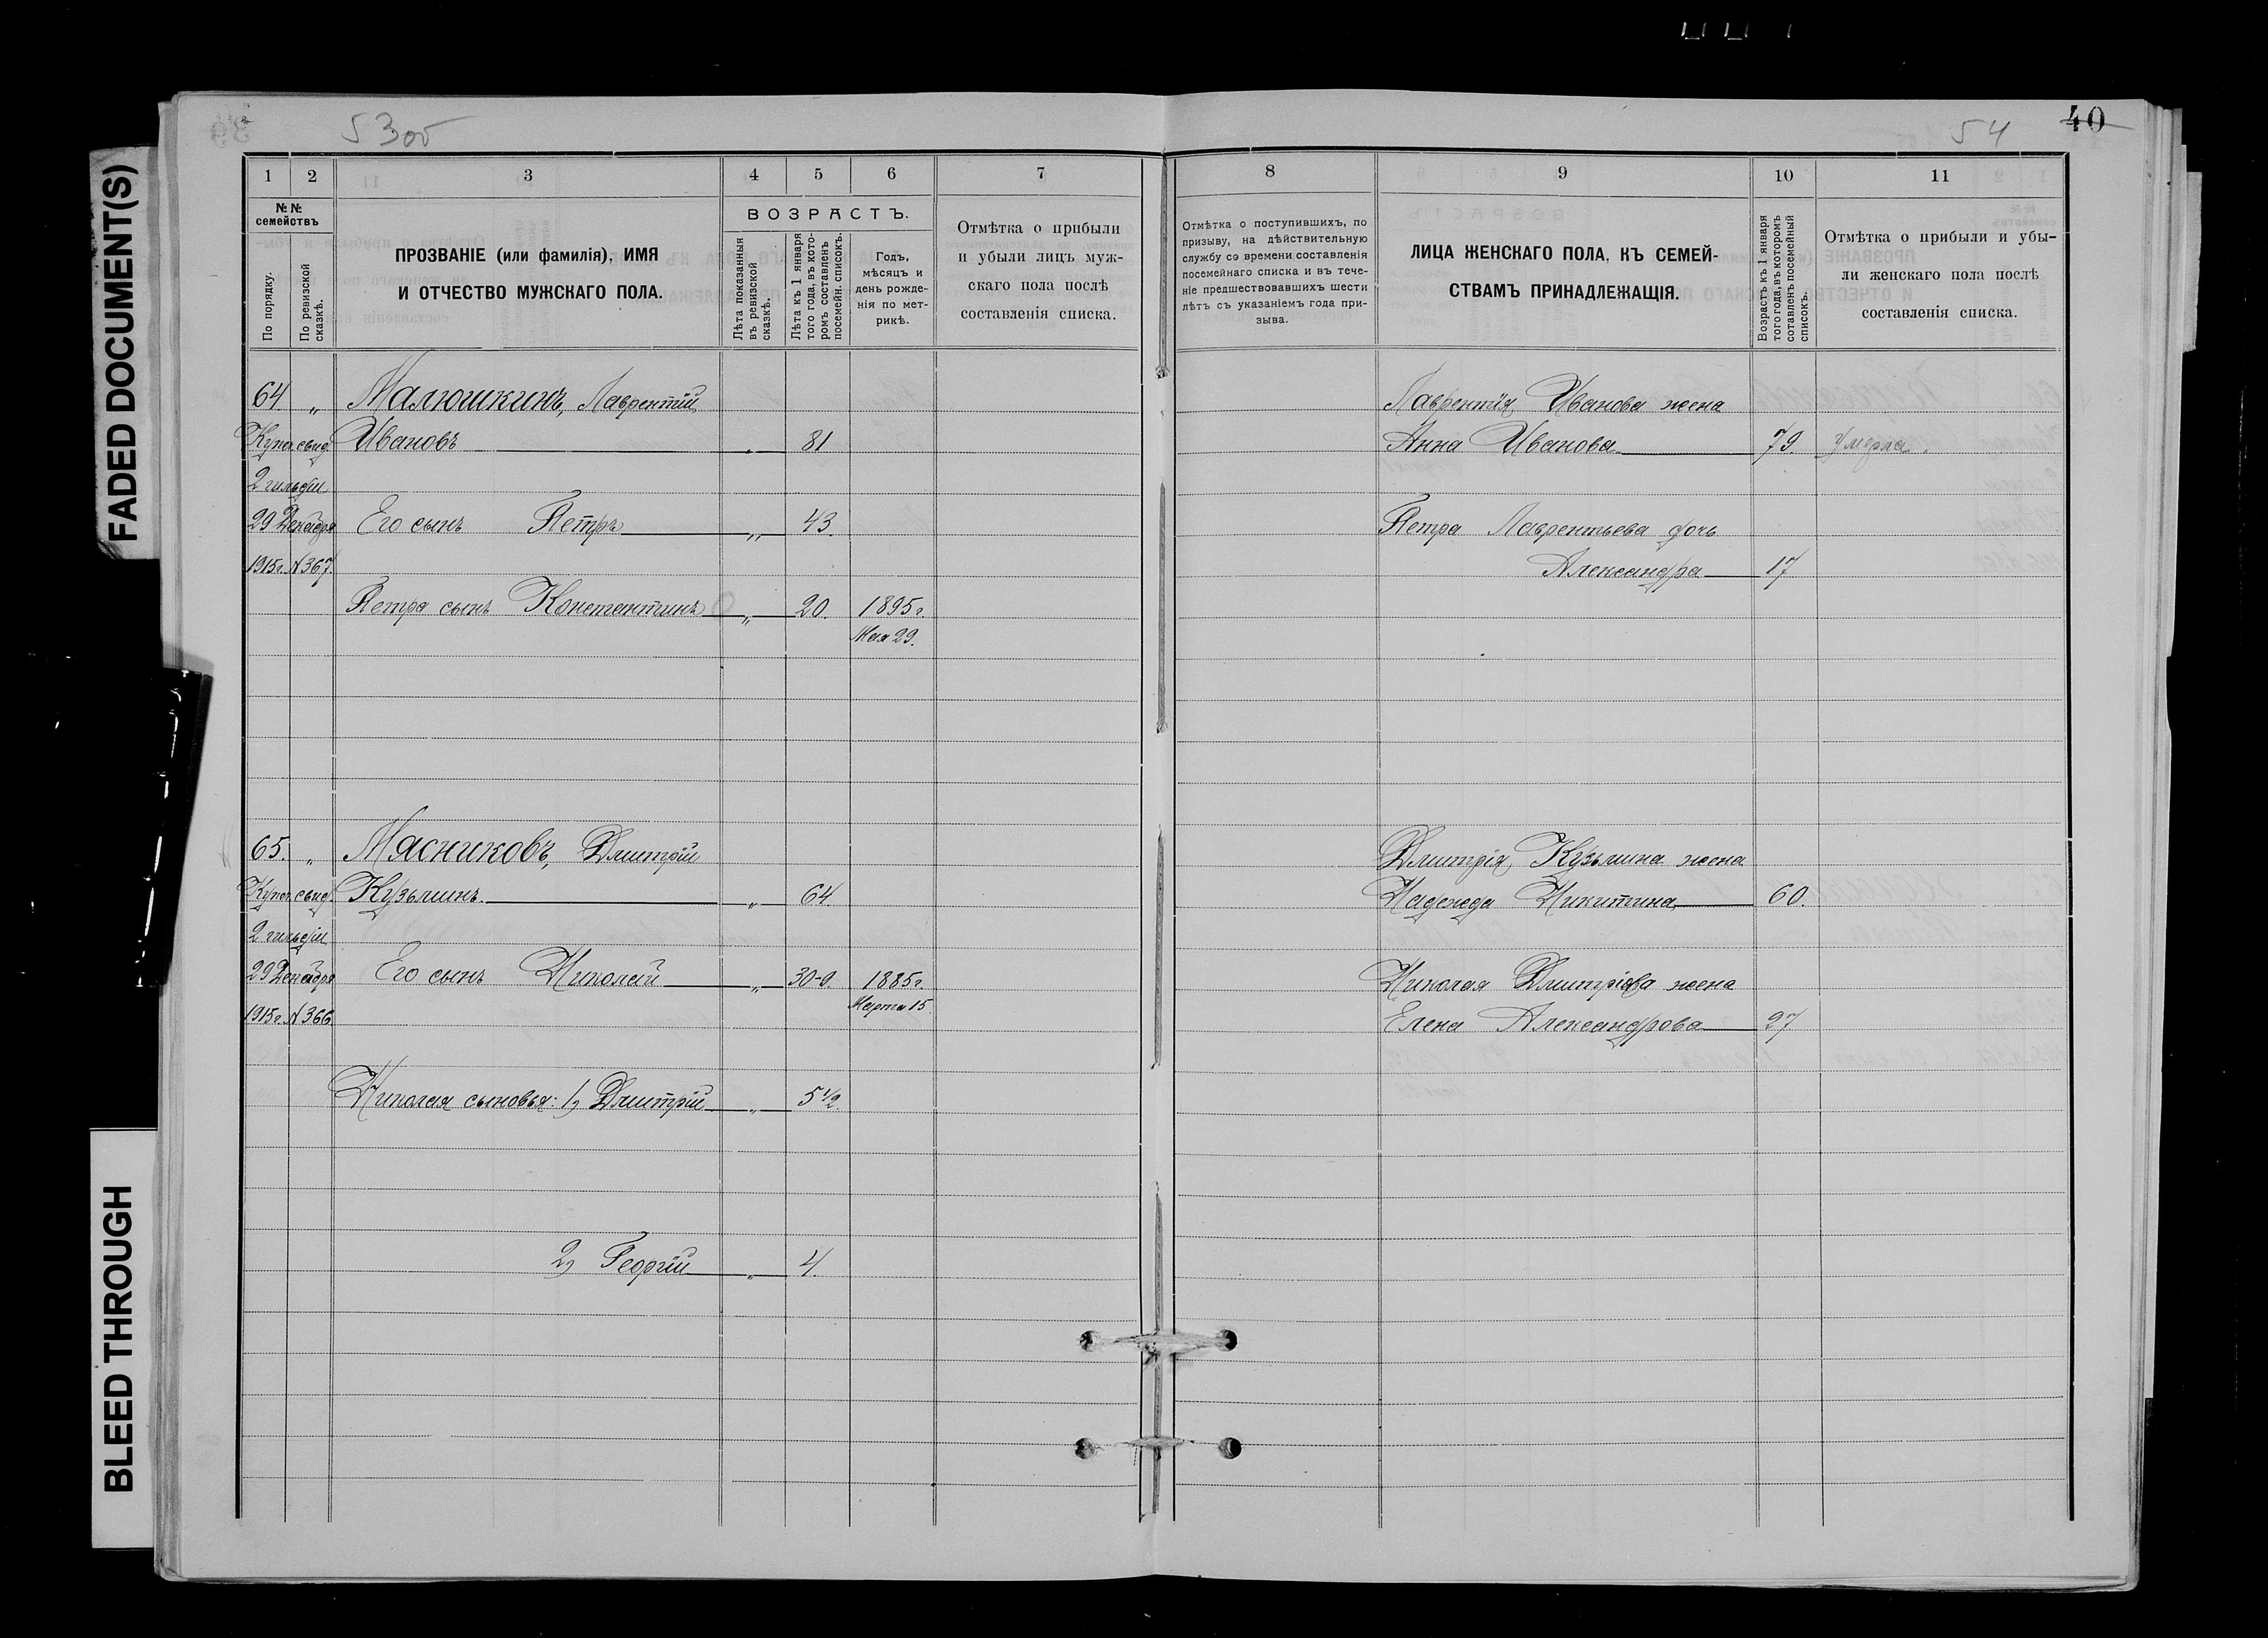 FADED DOCUMENT(S)
BLEED THROUGH
54
40
1 2 3 4 5 6 7
№№ семействъ
По порядку.
По ревизской сказкѣ.
ПРОЗВАНІЕ (или фамилія), ИМЯ
И ОТЧЕСТВО МУЖСКАГО ПОЛА.
ВОЗРАСТЪ.
Лѣта показанныя
въ ревизской
сказкѣ.
Лѣта къ 1 января
того года, въ кото-
ромъ составленъ
посемейн. списокъ.
Годъ,
мѣсяцъ и
день рожде-
нія по мет-
рикѣ.
Отмѣтка о прибыли
и убыли лицъ муж-
скаго пола послѣ
составленія списка.
64 „ Малюшкинъ, Лаврентій
Купеч. свид. Ивановъ „ 81
2 гильдіи
29 Декабря Его сынъ Петръ „ 43.
1915 г. № 367.
Петра сынъ Константинъ „ 20. 1895 г.
Мая 29.
65. „ Масниковъ, Дмитрій
Купеч. свид. Кузьминъ „ 64
2 гильдіи
29 Декабря Его сынъ Николай „ 30-9. 1885 г.
Марта 15
1915 г. № 366
Николая сыновья: 1) Дмитрій „ 5 1/2.
2) Георгій „ 4.
8 9 10 11
Отмѣтка о поступившихъ, по
призыву, на дѣйствительную
службу со времени составленія
посемейнаго списка и въ тече-
ніе предшествовавшихъ шести
лѣтъ съ указаніемъ года при-
зыва.
ЛИЦА ЖЕНСКАГО ПОЛА, КЪ СЕМЕЙ-
СТВАМЪ ПРИНАДЛЕЖАЩІЯ.
Возрастъ къ 1 января
того года, въ которомъ
сотавленъ посемейный
списокъ.
Отмѣтка о прибыли и убы-
ли женскаго пола послѣ
составленія списка.
Лаврентія Иванова жена
Анна Иванова 79. Умерла.
Петра Лаврентьева дочь
Александра 17
Дмитрія Кузьмина жена
Надежда Никитина 60.
Николая Дмитріева жена
Елена Александрова 27